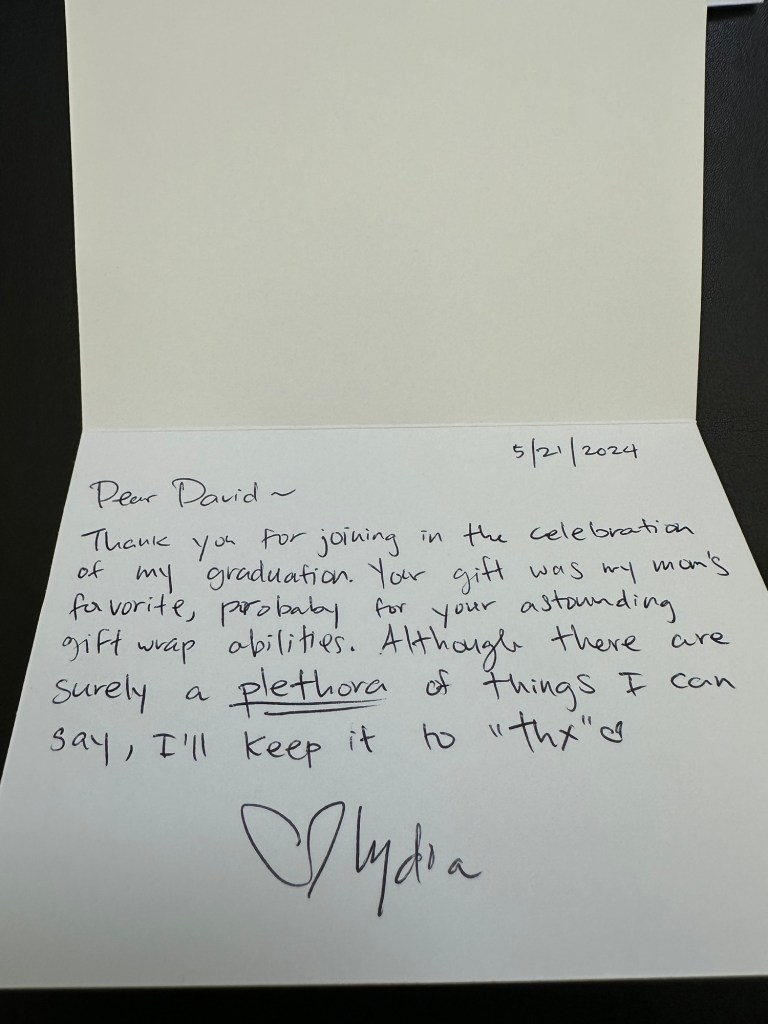 5/21/2024
Dear David ~
Thank you for joining in the celebration
of my graduation. Your gift was my mom's
favorite, probabaly for your astounding
gift wrap abilities. Although there are
surely a plethora of things I can
say, I'll keep it to "thx" ♡
♡ Lydia